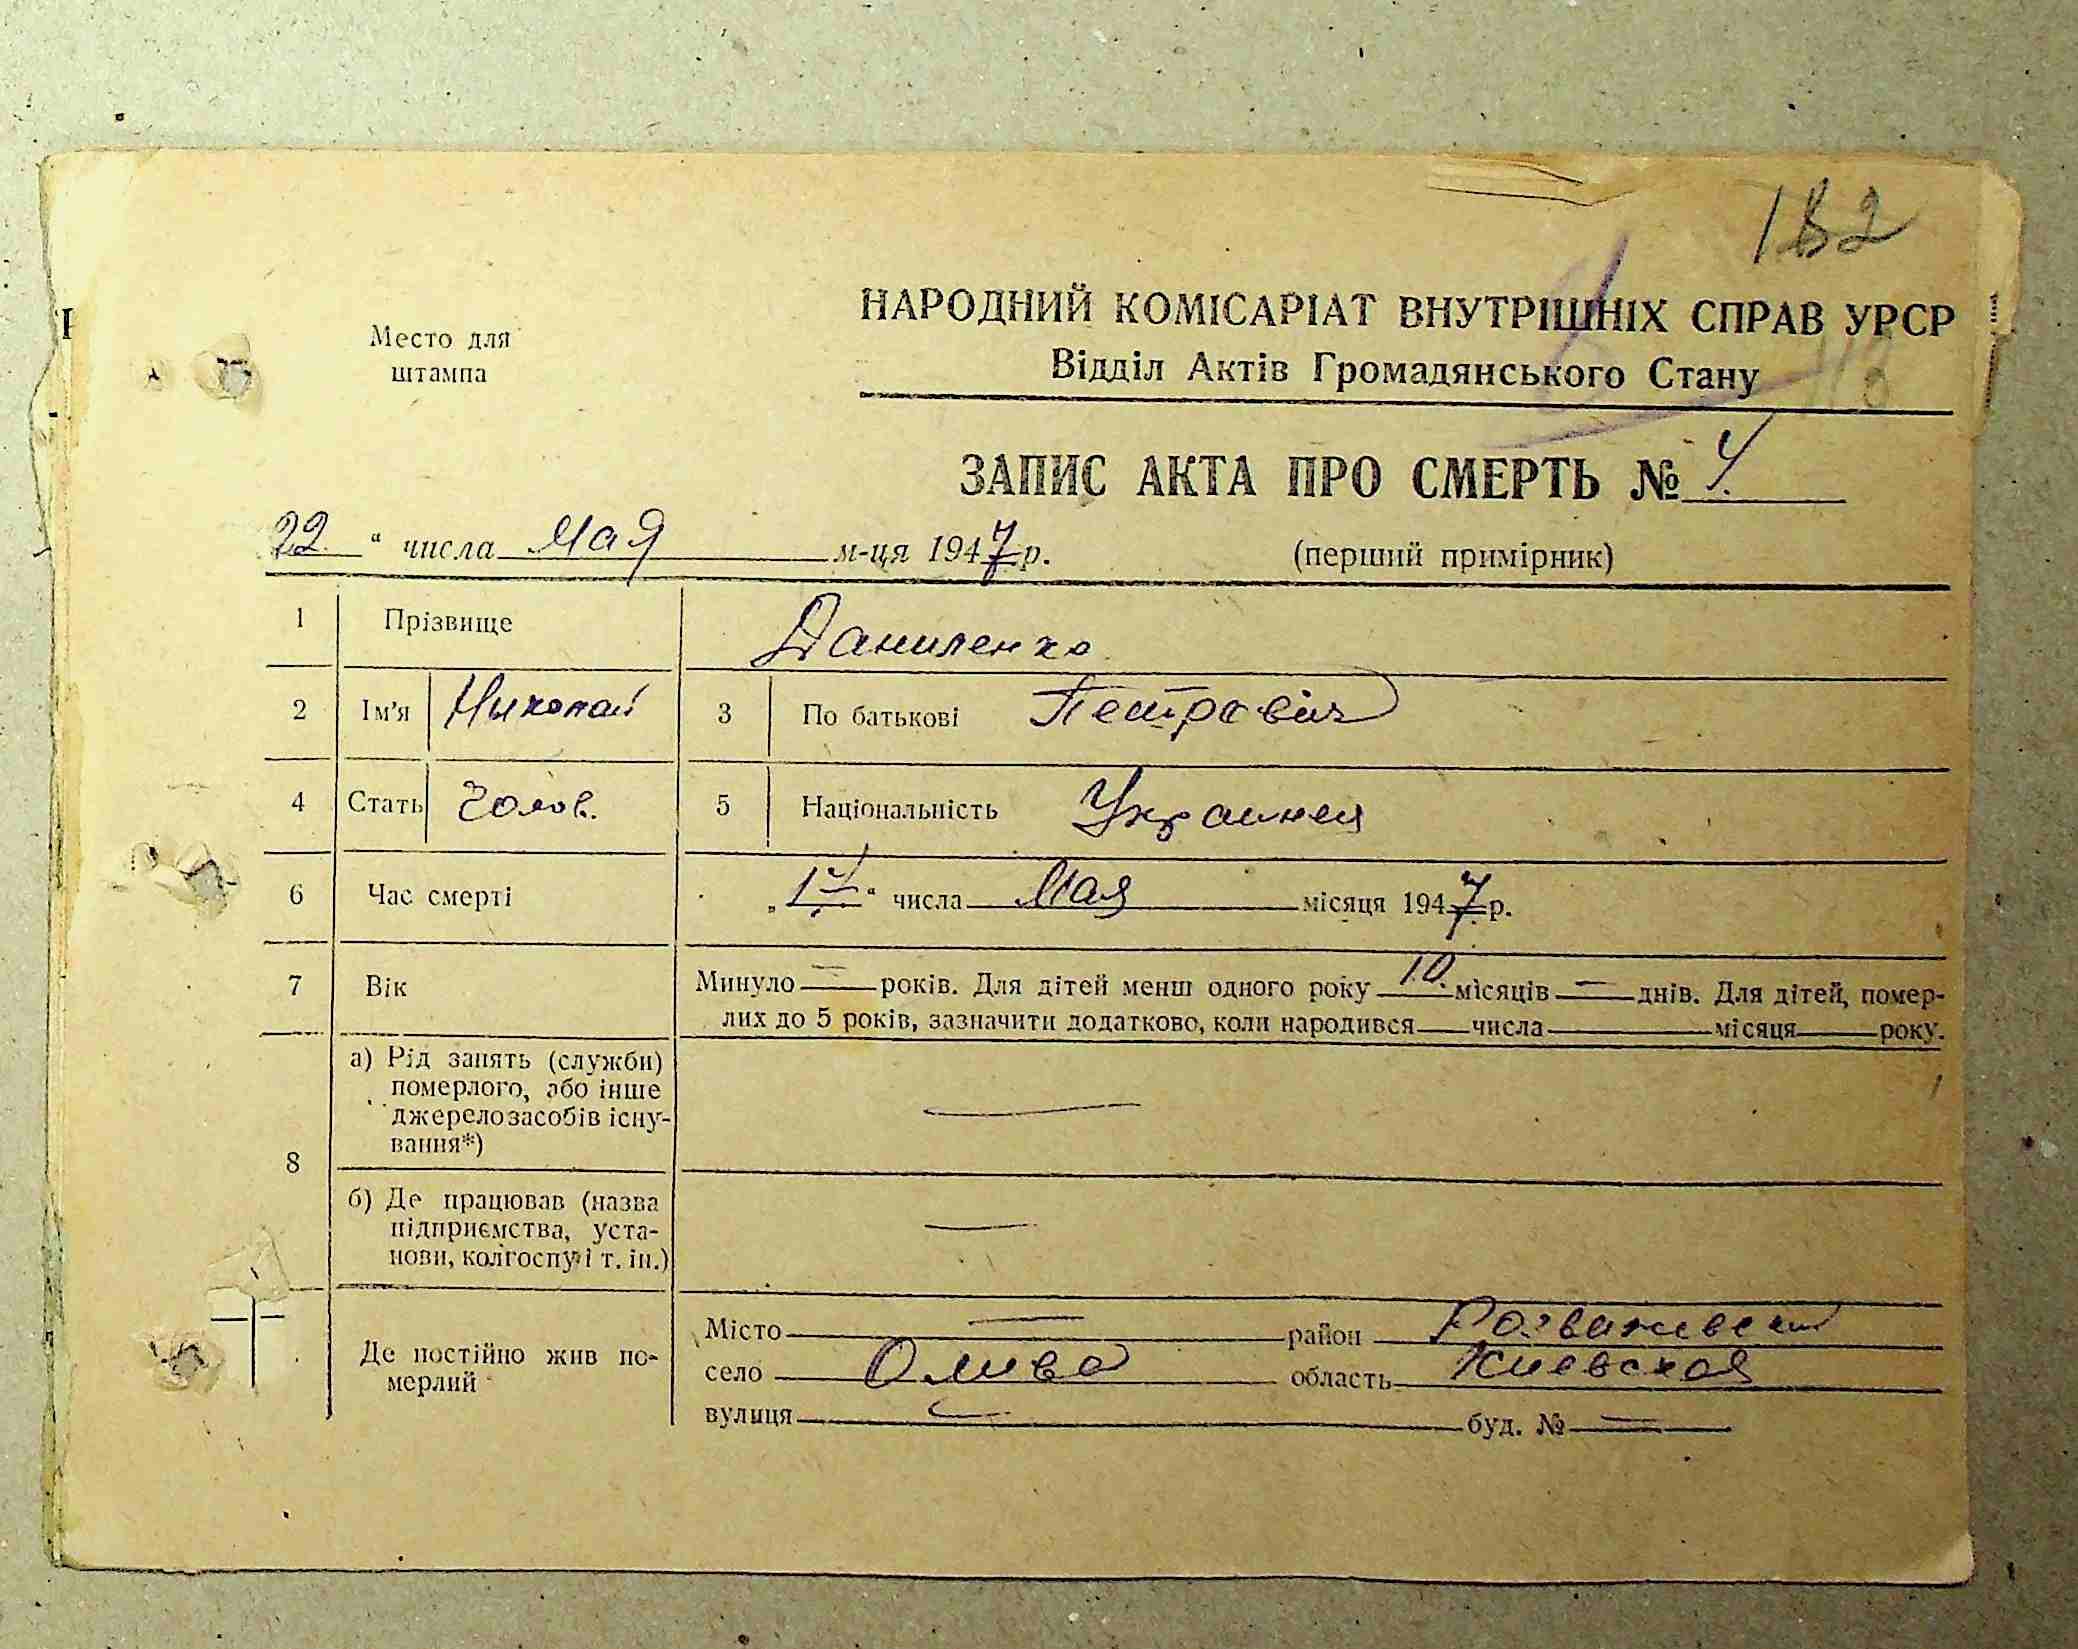 182
НАРОДНИЙ КОМІСАРІАТ ВНУТРІШНІХ СПРАВ УРСР
Место для штампа
Відділ Актів Громадянського Стану
ЗАПИС АКТА ПРО СМЕРТЬ № 4.
22 " числа Мая м-ця 1947 р. (перший примірник)
1 Прізвище Даниленко
2 Ім'я Николай 3 По батькові Петрович
4 Стать Чолов. 5 Національність Украинец
6 Час смерті „17" числа Мая місяця 1947 р.
7 Вік Минуло — років. Для дітей менш одного року 10. місяців — днів. Для дітей, помер-
лих до 5 років, зазначити додатково, коли народився числа місяця року.
8 а) Рід занять (служби)
померлого, або інше
джерело засобів існу-
вання*) —
б) Де працював (назва
підприємства, уста-
нови, колгоспу і т. ін.) —
Де постійно жив по-
мерлий
Місто — район Розважевский
село Олива область Киевская
вулиця — буд. № —